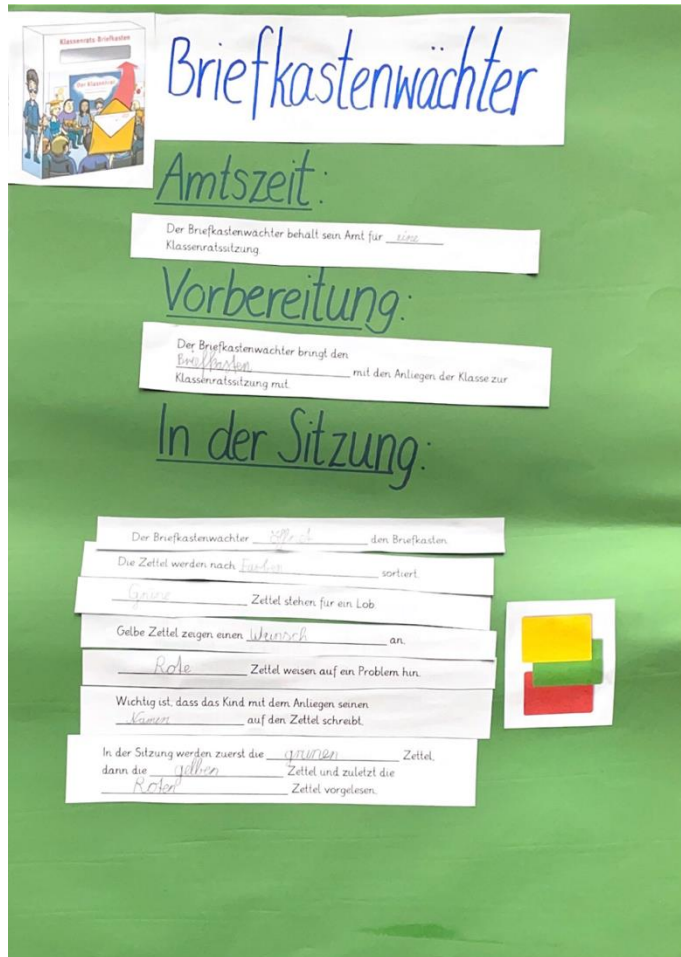 Klassenrats Briefkasten
Der Klassenrat
Briefkastenwächter
Amtszeit:
Der Briefkastenwächter behält sein Amt für eine
Klassenratssitzung.
Vorbereitung:
Der Briefkastenwächter bringt den
Briefkasten mit den Anliegen der Klasse zur
Klassenratssitzung mit.
In der Sitzung:
Der Briefkastenwächter öffnet den Briefkasten.
Die Zettel werden nach Farben sortiert.
Grüne Zettel stehen für ein Lob.
Gelbe Zettel zeigen einen Wunsch an.
Rote Zettel weisen auf ein Problem hin.
Wichtig ist, dass das Kind mit dem Anliegen seinen
Namen auf den Zettel schreibt.
In der Sitzung werden zuerst die grünen Zettel,
dann die gelben Zettel und zuletzt die
Roten Zettel vorgelesen.